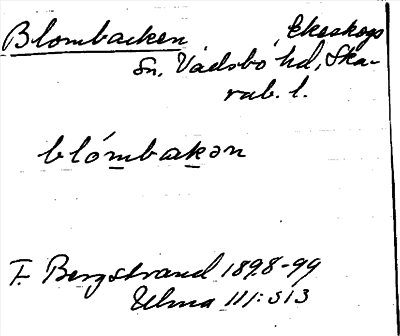 Blombacken Ekeskogs
Sn, Vadsbo hd, Ska-
rab. l.
blómbakən
F. Bergstrand 1898-99
Ulma 111:513